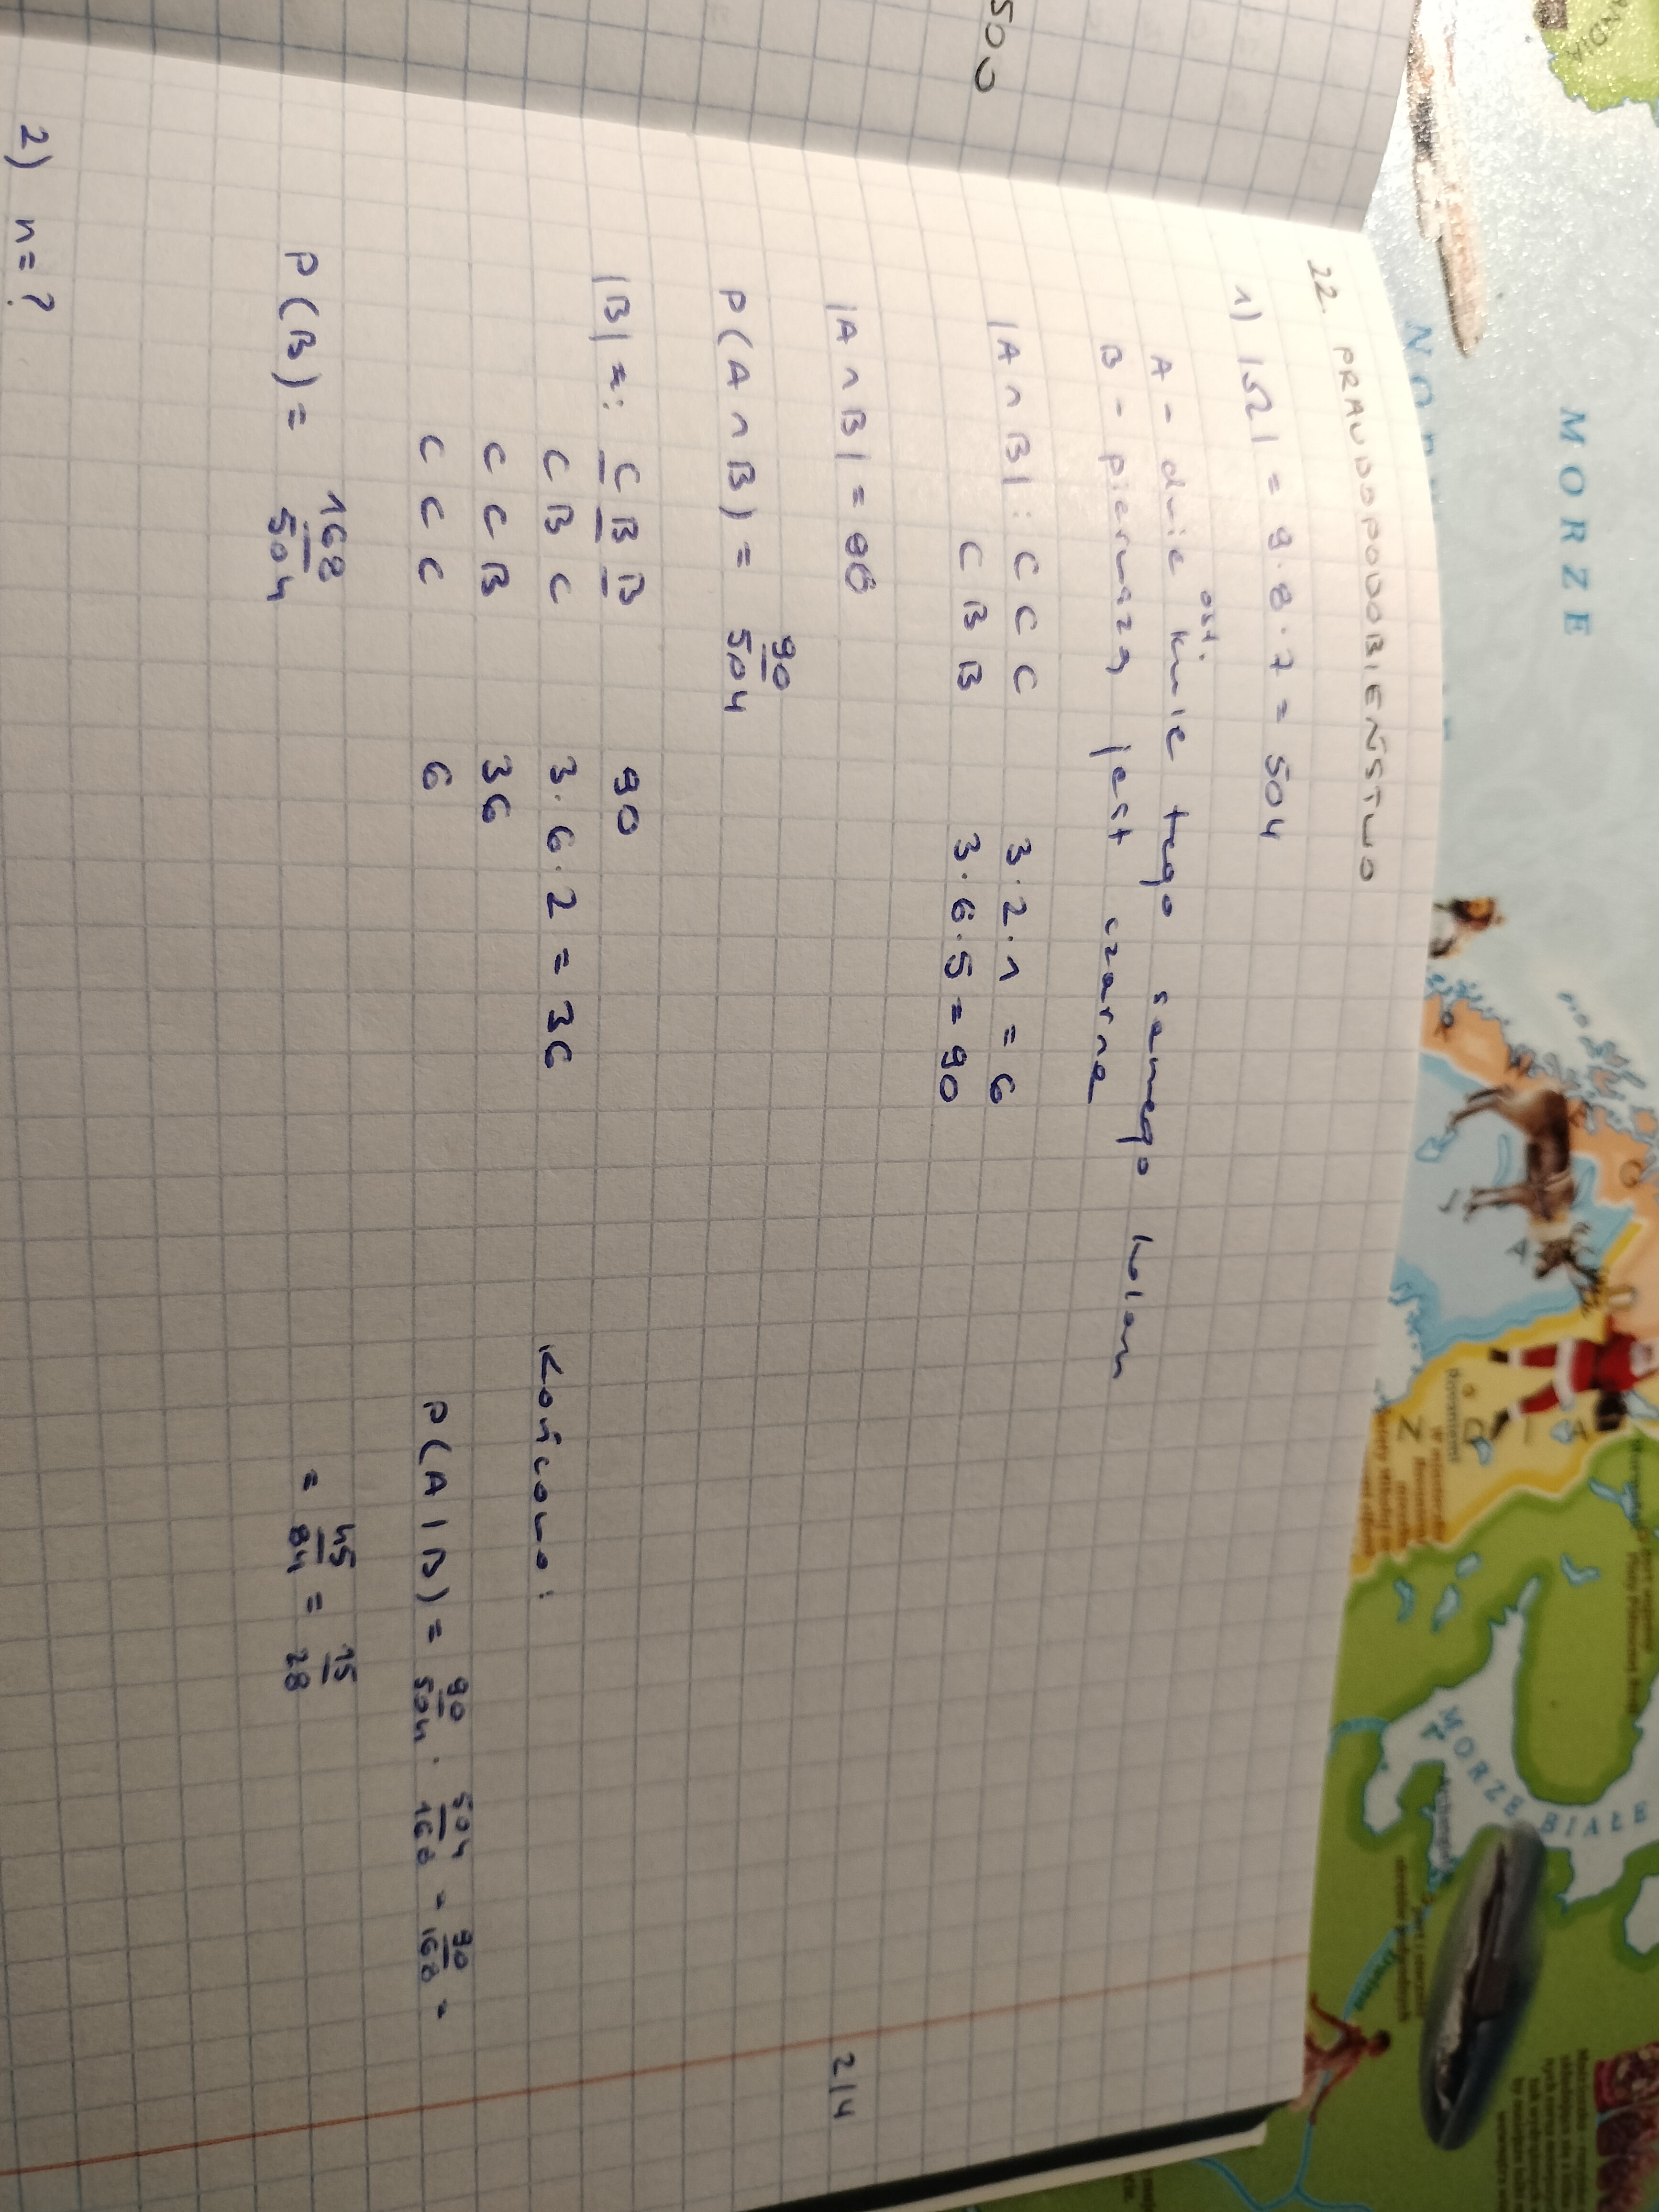 500
22. PRAWDOPODOBIEŃSTWO
1) |Ω| = 9·8·7 = 504
ost.
A - dwie kule tego samego koloru
B - pierwsza jest czarna
|A ∩ B| : C C C 3·2·1 = 6
C B B 3·6·5 = 90
|A ∩ B| =
2/4
P(A ∩ B) = 90/504
|B| =: C B B 90
C B C 3·6·2 = 36
C C B 36
C C C 6
P(B) = 168/504
Końcowo:
P(A|B) = 90/504 · 504/168 = 90/168 =
= 45/84 = 15/28
2) n = ?
MORZE
MORZE BIAŁE